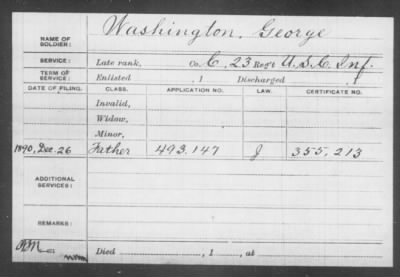 NAME OF SOLDIER: Washington, George
SERVICE: Late rank, Co. C, 23 Reg't U.S.C. Inf.
TERM OF SERVICE: Enlisted , 1 Discharged , 1
DATE OF FILING. CLASS. APPLICATION NO. LAW. CERTIFICATE NO.
Invalid,
Widow,
Minor,
1890, Dec. 26 Father 493,147 J 355,213
ADDITIONAL SERVICES:
REMARKS:
Died , 1 , at